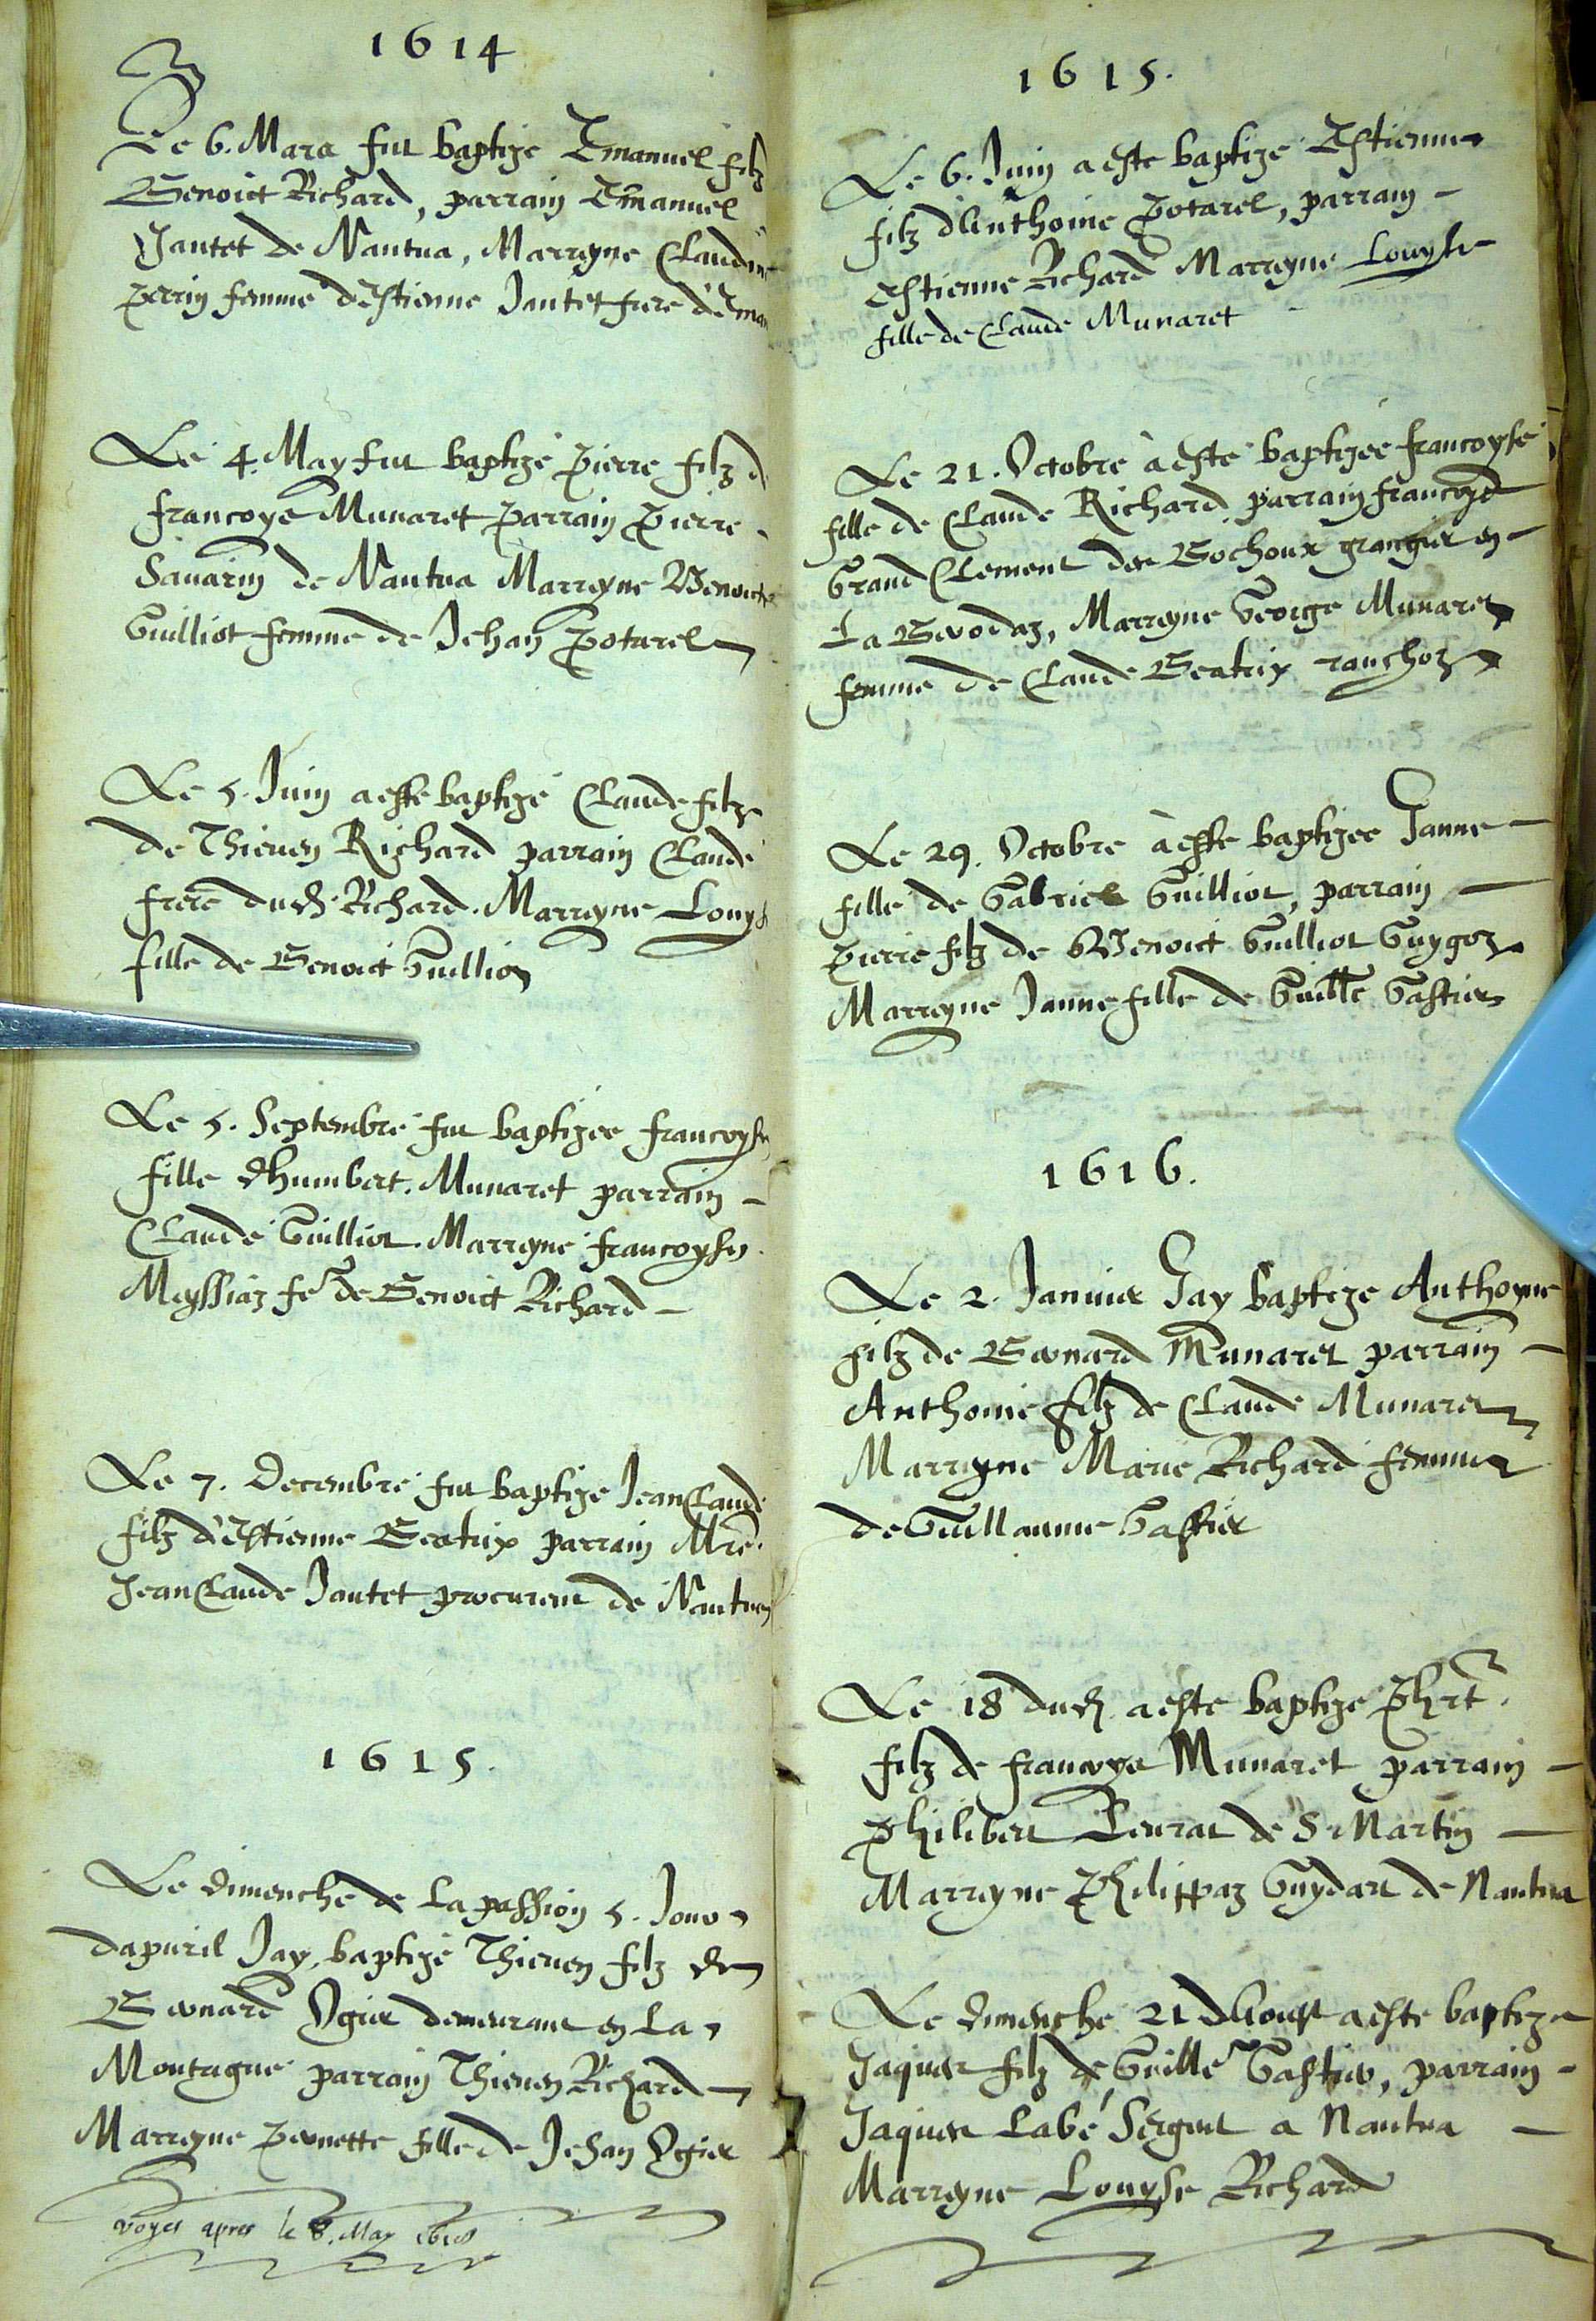 1614
Le 6. Mars fut baptizé Emanuel filz
Benoict Richard, parrain Emanuel
Jantet de Nantua, Marreyne Claudine
Perrin femme d'Estienne Jantet frere d'Eman
Le 4. May fut baptizé Pierre filz d
francoys Munaret Parrain Pierre
Sauarin de Nantua Marreyne Benoicte
Guilliot femme de Jehan Potarel
Le 5. Juin a esté baptizé Claude filz
de Thieuen Richard parrain Claude
frere dud. Richard. Marreyne Louys
fille de Benoict Guilliot
Le 5. Septembre fut baptizee francoyse
fille d'humbert. Munaret parrain
Claude Guilliot. Marreyne francoyse
Meyssiaz fe. de Benoict Richard
Le 7. Decembre fut baptizé Jean Claude
filz d'Estienne Beatrix parrain Mre.
Jean Claude Jantet procureur de Nantua
1615.
Le dimenche de La passion 5. Jour
dapuril Jay baptizé Thieuen filz de
Bernard Ogier demeurant en La
Montagne parrain Thieuen Richard
Marreyne Pernette fille de Jehan Ogier
voyes apres le 8. May
1615.
Le 6. Juin a esté baptizé Estienne
filz d'Anthoine Potarel, parrain
Estienne Richard Marreyne Louyse
fille de Claude Munaret
Le 21. Octobre a esté baptizee francoyse
fille de Claude Richard parrain francoys
Grand Clement des Bochoux grangier en
La Beuodaz, Marreyne George Munaret
femme de Claude Beatrix ranchoz
Le 29. Octobre a esté baptizee Janne
fille de Gabriel Guilliot, parrain
Pierre filz de Benoict Guilliot Guygoz
Marreyne Janne fille de Guille Gastier
1616.
Le 2. Januier Jay baptizé Anthoyne
filz de Bernard Munaret parrain
Anthoine filz de Claude Munaret
Marreyne Marie Richard femme
de Guillaume Gastier
Le 18 dud. a esté baptizé Phrt.
filz de francoys Munaret parrain
Philibert Leurat de S. Martin
Marreyne Philippaz Guydard de Nantua
Le dimenche 21 d'Aoust a esté baptizé
Jaques filz de Guille Gastier, parrain
Jaques Labé Sergent a Nantua
Marreyne Louyse Richard